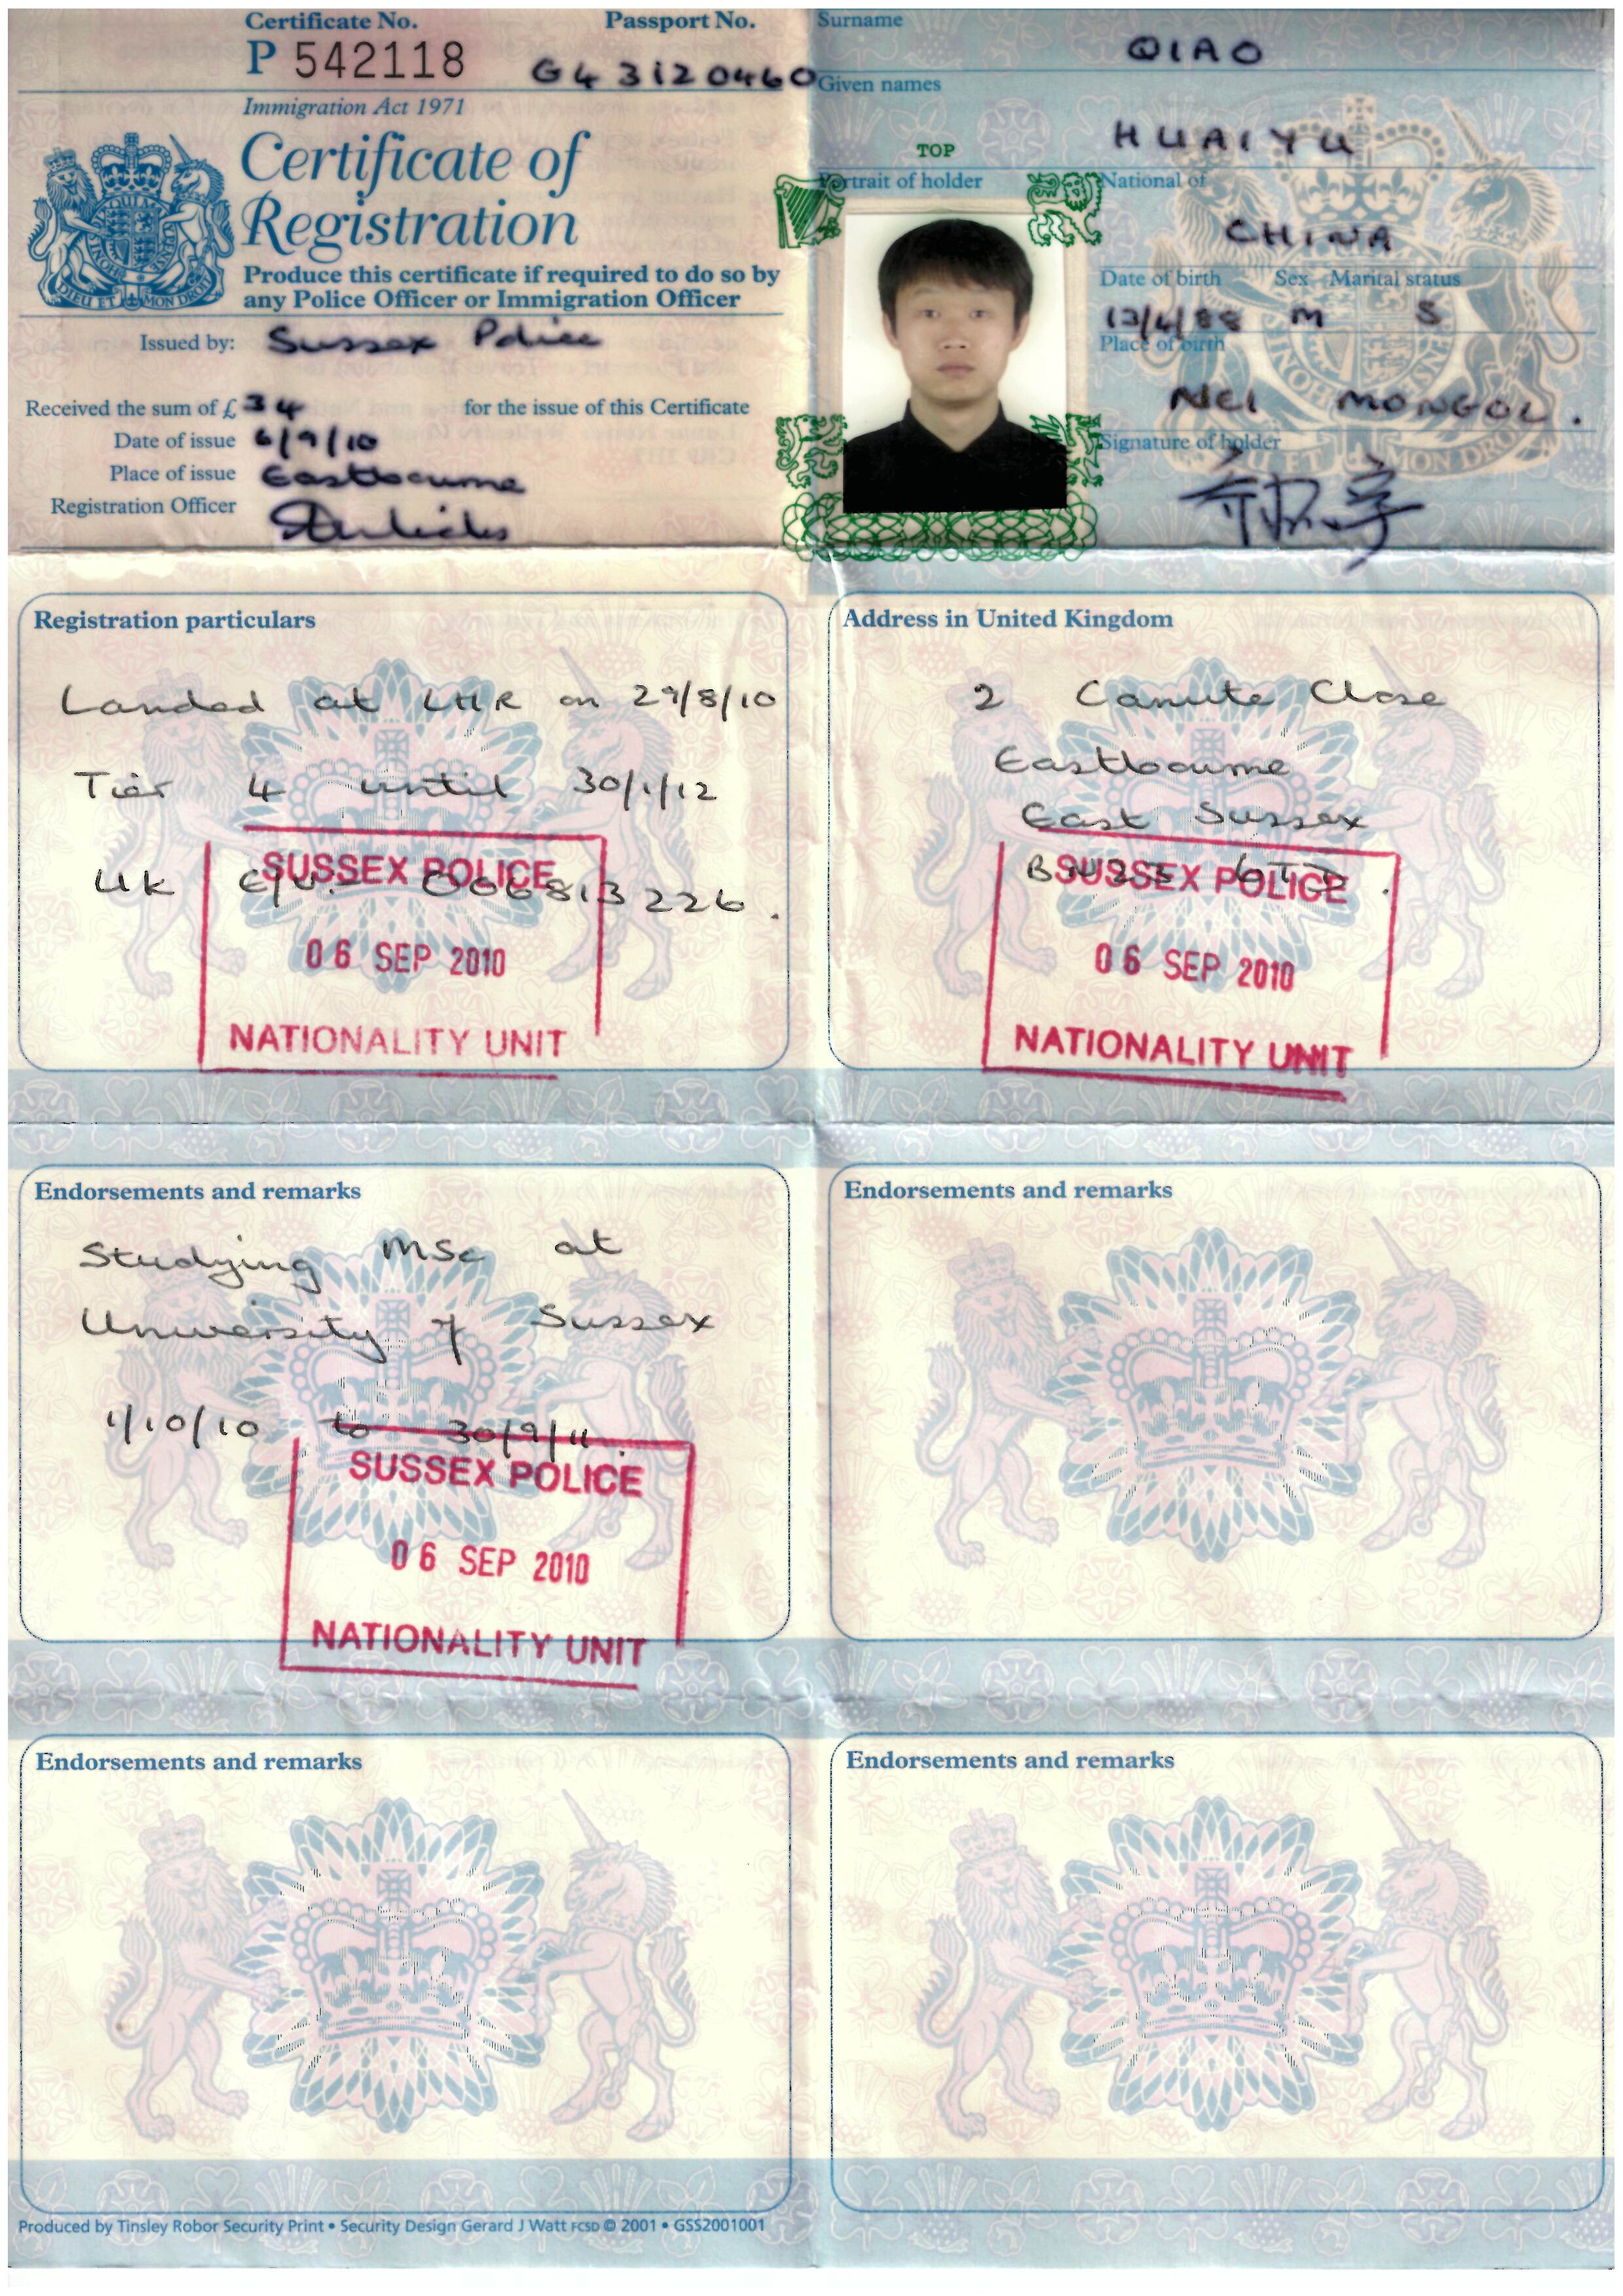 Certificate No.
Passport No.
P 542118
G43120460
Immigration Act 1971
Certificate of
Registration
Produce this certificate if required to do so by
any Police Officer or Immigration Officer
Issued by: Sussex Police
Received the sum of £ 34 for the issue of this Certificate
Date of issue 6/9/10
Place of issue Eastbourne
Registration Officer
DIEU ET MON DROIT
Surname
QIAO
Given names
HUAIYU
TOP
Portrait of holder
National of
CHINA
Date of birth Sex Marital status
13/4/88 M S
Place of birth
NEI MONGOL.
Signature of holder
Registration particulars
Landed at LHR on 29/8/10
Tier 4 until 30/1/12
UK 006813226.
SUSSEX POLICE
06 SEP 2010
NATIONALITY UNIT
Address in United Kingdom
2 Canute Close
Eastbourne
East Sussex
SUSSEX POLICE
06 SEP 2010
NATIONALITY UNIT
Endorsements and remarks
Studying MSc at
University of Sussex
1/10/10 to 30/9/11.
SUSSEX POLICE
06 SEP 2010
NATIONALITY UNIT
Endorsements and remarks
Endorsements and remarks
Endorsements and remarks
Produced by Tinsley Robor Security Print • Security Design Gerard J Watt FCSD © 2001 • GSS2001001